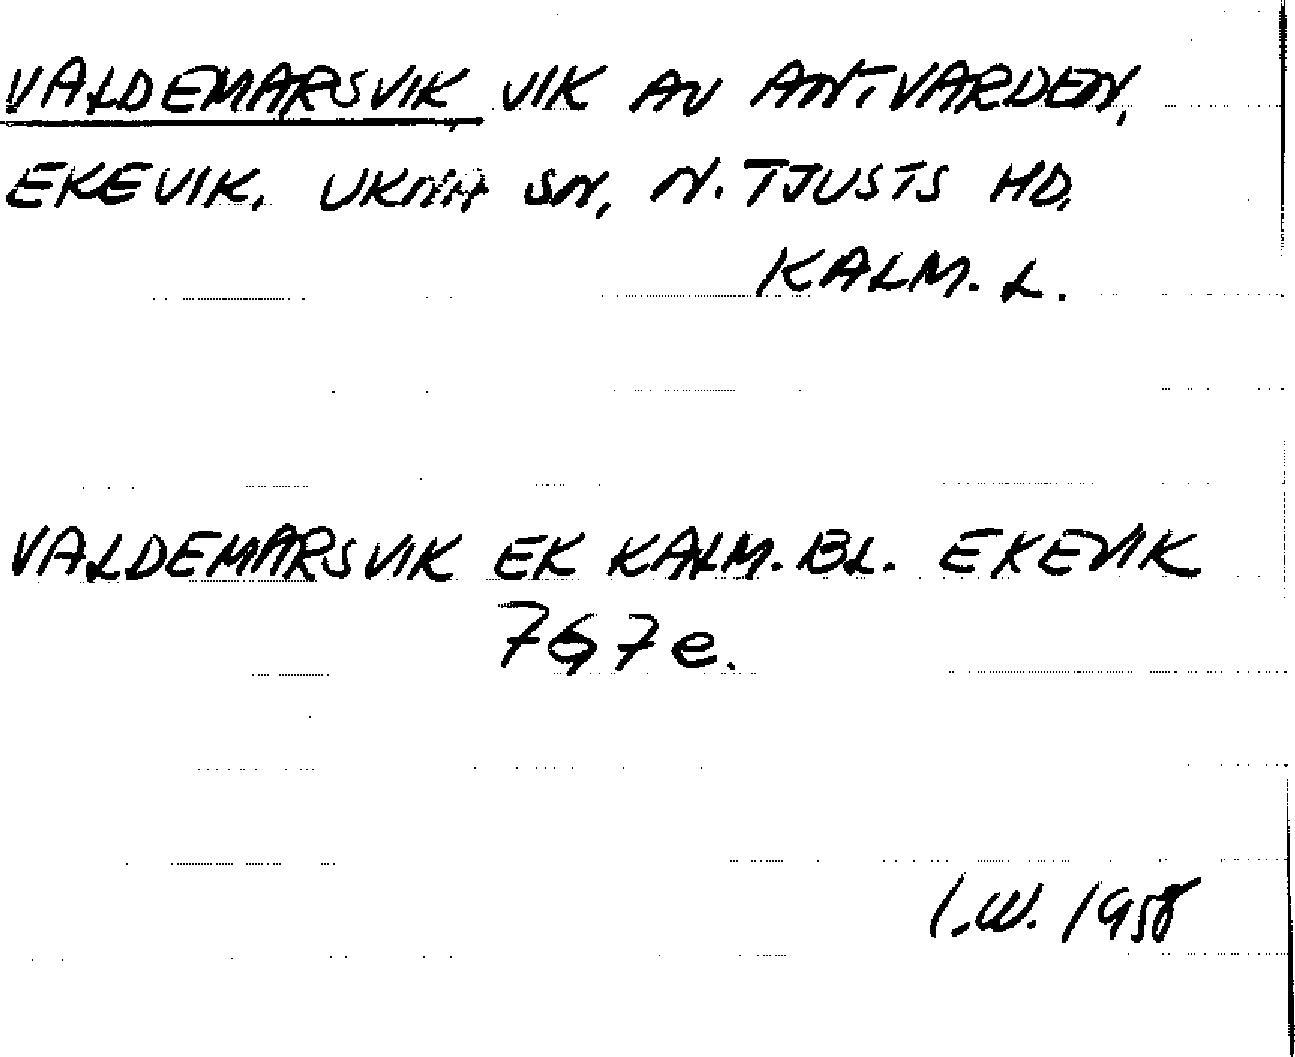 VALDEMARSVIK, VIK AV ANTVARDEN,
EKEVIK, UKNA SN, N. TJUSTS HD,
KALM. L.
VALDEMARSVIK EK KALM. BL. EKEVIK
767 e.
I.W. 1958